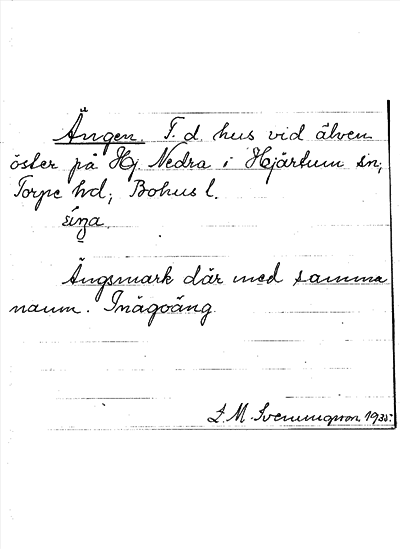 Ängen. F. d. hus vid älven
öster på Hj. Nedra i Hjärtum sn,
Torpe hd, Bohus l.
Ängsmark där med samma
namn. Inägoäng
L. M. Svenungsson 1935.